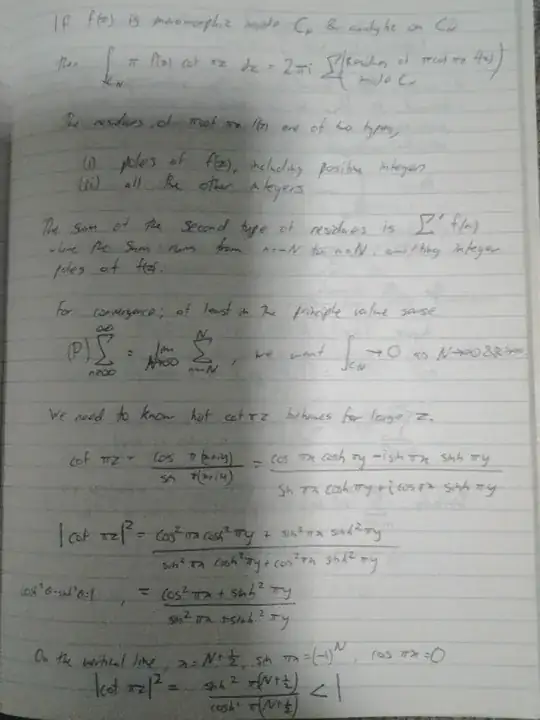 If f(z) is meromorphic inside C_N & analytic on C_N
then ∫_{C_N} π f(z) cot πz dz = 2πi Σ(Residues of π cot πz f(z) inside C_N)
The residues of π cot πz f(z) are of two types,
(i) poles of f(z), including positive integers
(ii) all the other integers
The sum of the second type of residues is Σ' f(n)
where the sum runs from n=-N to n=N, omitting integer
poles of f(z).
For convergence, at least in the principle value sense
(P) Σ = lim Σ , we want ∫_{C_N} → 0 as N→∞
We need to know how cot πz behaves for large z.
cot πz = cos π(x+iy) / sin π(x+iy) = (cos πx cosh πy - i sin πx sinh πy) / (sin πx cosh πy + i cos πx sinh πy)
|cot πz|² = (cos² πx cosh² πy + sin² πx sinh² πy) / (sin² πx cosh² πy + cos² πx sinh² πy)
cosh²θ-sinh²θ=1, = (cos² πx + sinh² πy) / (sin² πx + sinh² πy)
On the vertical line, x = N+½, sin πx = (-1)^N, cos πx = 0
|cot πz|² = sinh² π(N+½) / cosh² π(N+½) < 1